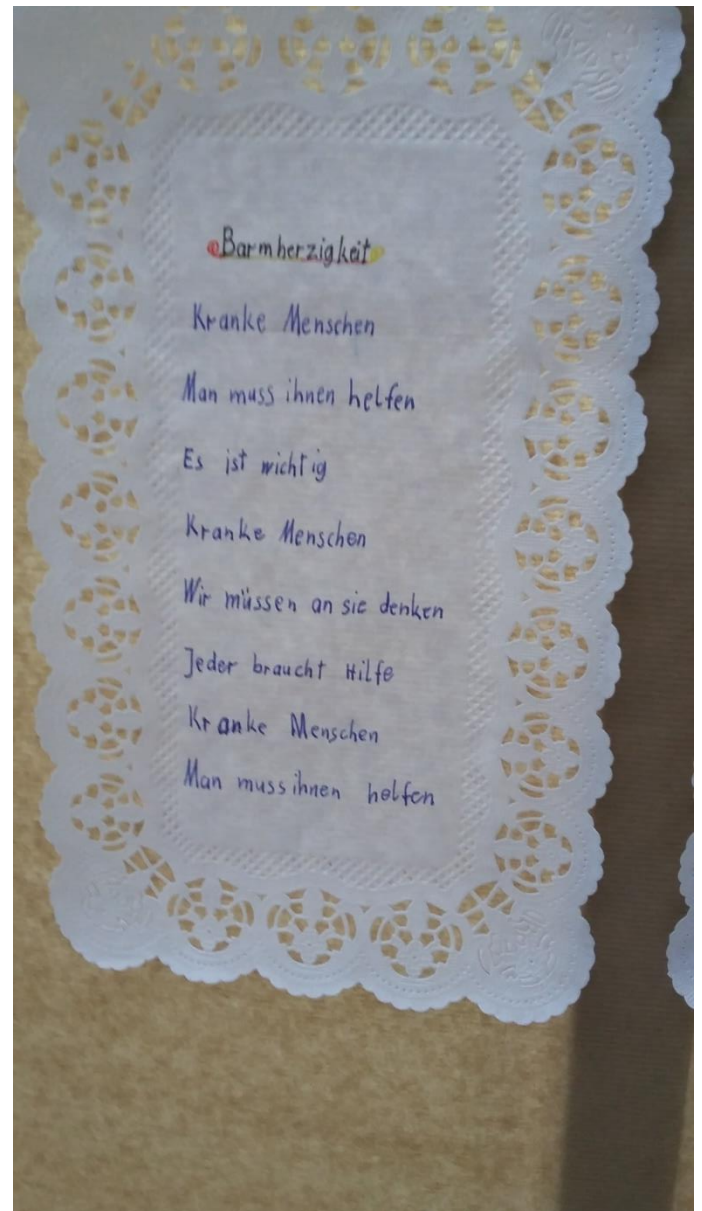 Barmherzigkeit
Kranke Menschen
Man muss ihnen helfen
Es ist wichtig
Kranke Menschen
Wir müssen an sie denken
Jeder braucht Hilfe
Kranke Menschen
Man muss ihnen helfen